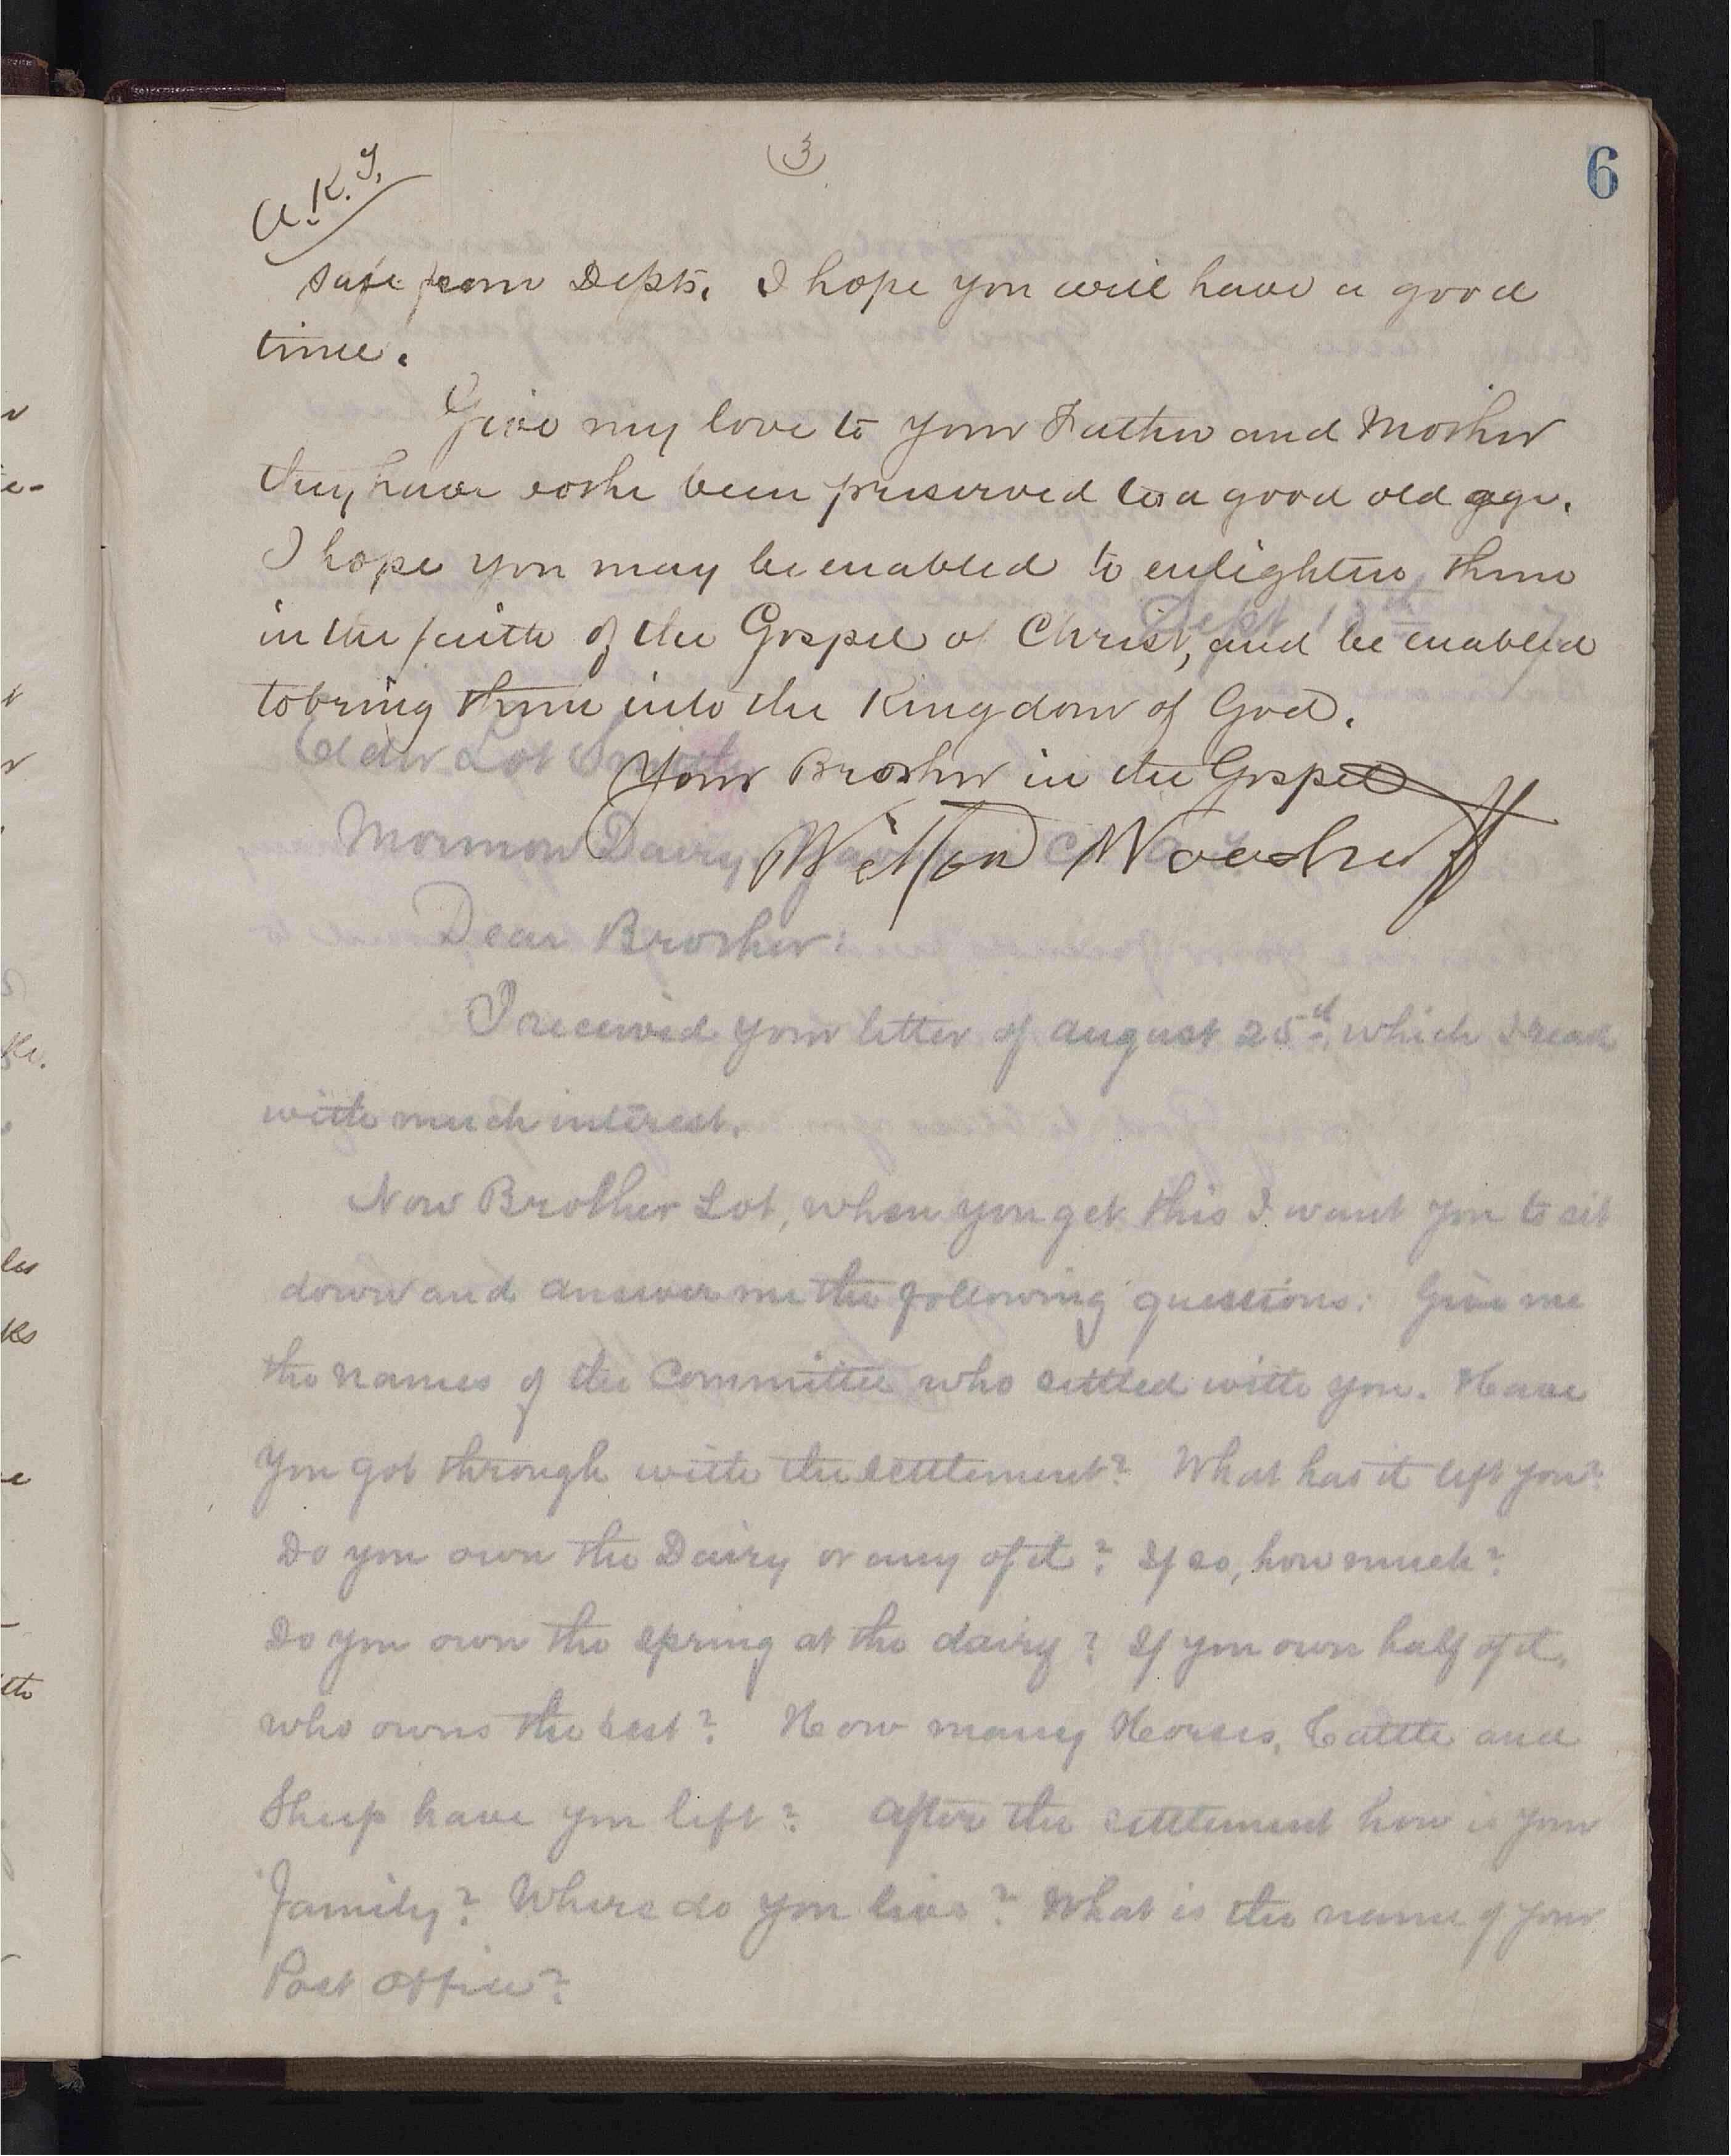 (3)
6
A.K.T.
safe from Depts. I hope you will have a good
time.
Give my love to your Father and Mother
they have both been preserved to a good old age.
I hope you may be enabled to enlighten them
in the faith of the Gospel of Christ, and be enabled
to bring them into the Kingdom of God.
Your Brother in the Gospel
Wilford Woodruff
Sept 13th
Elder Lot Smith
Mormon Dairy
Dear Brother:
I received your letter of August 25th, which I read
with much interest.
Now Brother Lot, when you get this I want you to sit
down and answer me the following questions: Give me
the names of the Committee who settled with you. Have
you got through with the settlement? What has it left you?
Do you own the Dairy or any of it? If so, how much?
Do you own the spring at the dairy? If you own half of it,
who owns the rest? How many Horses, Cattle and
Sheep have you left? After the settlement how is your
Family? Where do you live? What is the name of your
Post Office?